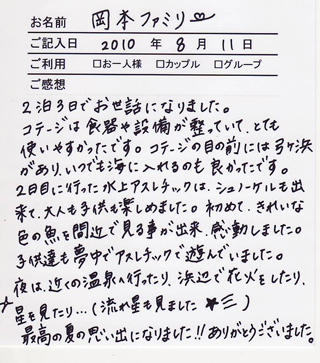 お名前 岡本ファミリー♡
ご記入日 2010 年 8 月 11 日
ご利用 □お一人様 □カップル □グループ
ご感想
2泊3日でお世話になりました。
コテージは食器や設備が整っていて、とても
使いやすかったです。コテージの目の前には弓ヶ浜
があり、いつでも海に入れるのも良かったです。
2日目に行った水上アスレチックは、シュノーケルも出
来て、大人も子供も楽しめました。初めて、きれいな
色の魚を間近で見る事が出来、感動しました。
子供達も夢中でアスレチックで遊んでいました。
夜は、近くの温泉へ行ったり、浜辺で花火をしたり、
☆星を見たり…(流れ星も見ました★彡)
最高の夏の思い出になりました!!ありがとうございました。